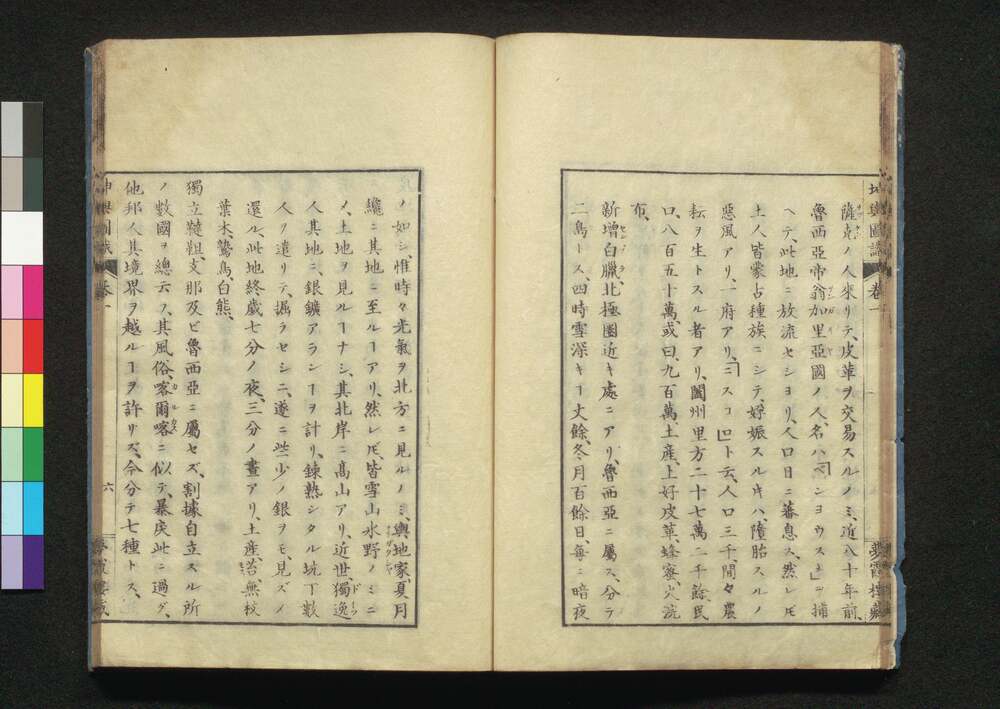 坤輿圖識 卷一
夢霞樓藏
薩克ノ人來リテ、皮革ヲ交易スルノミ、近八十年前、
魯西亞帝翁加里亞國ノ人、名ハ「ベンヨウスキ」ヲ捕
ヘテ、此地ニ放流セシヨリ、人口日ニ蕃息ス、然レ𪜈
土人皆蒙古種族ニシテ、婦娠スルキハ、墮胎スルノ
惡風アリ、一府アリ、「ニスコロ」ト云、人口三千間々農
耘ヲ生トスル者アリ、闔州里方二十七萬二千餘、民
口、八百五十萬、或曰、九百萬、土産、上好皮革、蜂蜜、火浣
布、
新増白臘、北極圏近キ處ニアリ、魯西亞ニ屬ス、分ヲ
二島トス、四時雪深キヿ丈餘、冬月百餘日、毎ニ暗夜
ノ如シ、惟時々光氣ヲ北方ニ見ルノミ、輿地家、夏月
纔ニ其地ニ至ルヿアリ、然レ𪜈、皆雪山水野ノミニ
ノ、土地ヲ見ルヿナシ、其北岸ニ高山アリ、近世、獨逸
人其地ニ、銀鑛アランヿヲ計リ、錬熟シタル坑丁數
人ヲ遣リテ、掘ラセシニ、遂ニ些少ノ銀ヲモ、見ズノ
還ル、此地終歳七分ノ夜、三分ノ晝アリ、土産、苔、無枝
葉木、鷙鳥、白熊、
獨立韃靼、支那及ビ魯西亞ニ屬セズ、割據自立スル所
ノ數國ヲ總云フ、其風俗、喀爾喀ニ似テ、暴戻此ニ過グ、
他邦人其境界ヲ越ルヿヲ許サズ、今分テ七種トス、
坤輿圖識 卷一
六
夢霞樓藏